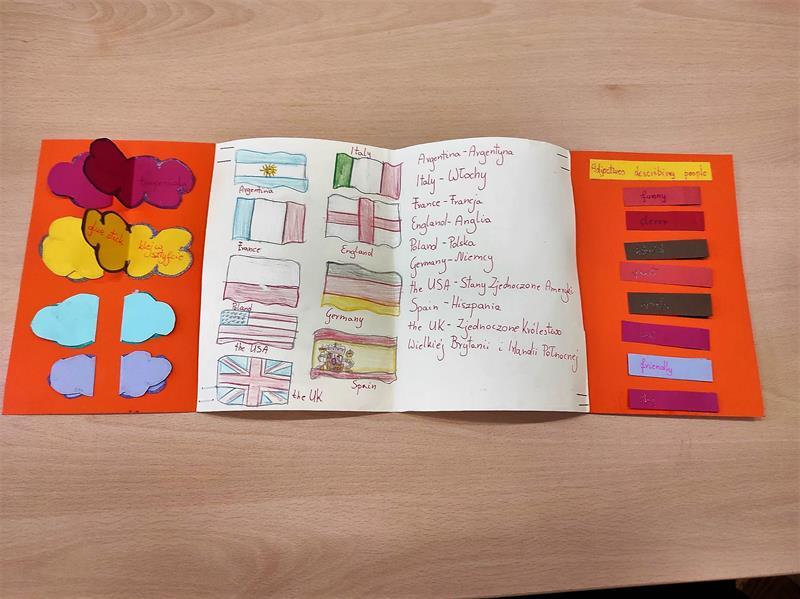 glue stick
klej w
sztyfcie
Italy
Argentina
France
England
Poland
Germany
the USA
Spain
the UK
Argentina - Argentyna
Italy - Włochy
France - Francja
England - Anglia
Poland - Polska
Germany - Niemcy
the USA - Stany Zjednoczone Ameryki
Spain - Hiszpania
the UK - Zjednoczone Królestwo
Wielkiej Brytanii i Irlandii Północnej
Adjectives describing people
funny
clever
friendly